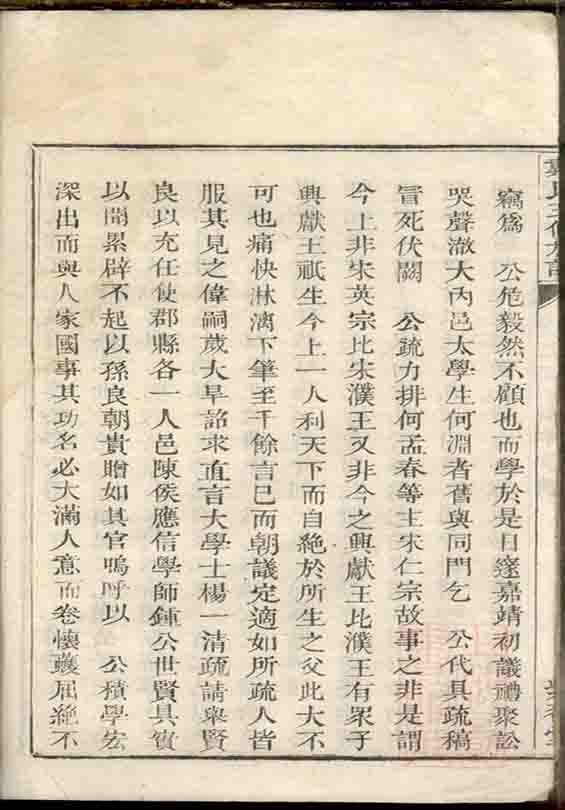 竊爲　公危毅然不顧也而學於是日邃嘉靖初議禮聚訟
哭聲澈大內邑太學生何淵者舊與同門乞　公代具疏稿
冒死伏闕　公疏力排何孟春等主宋仁宗故事之非是謂
今上非宋英宗比宋濮王又非今之興獻王比濮王有眾子
興獻王祇生今上一人利天下而自絶於所生之父此大不
可也痛快淋漓下筆至千餘言已而朝議定適如所疏人皆
服其見之偉嗣歲大旱詔求直言大學士楊一清疏請舉賢
良以充任使郡縣各一人邑陳侯應信學師鍾公世賢具實
以聞累辟不起以孫良朝貴贈如其官嗚呼以　公積學宏
深出而與人家國事其功名必大滿人意而卷懷蠖屈絶不